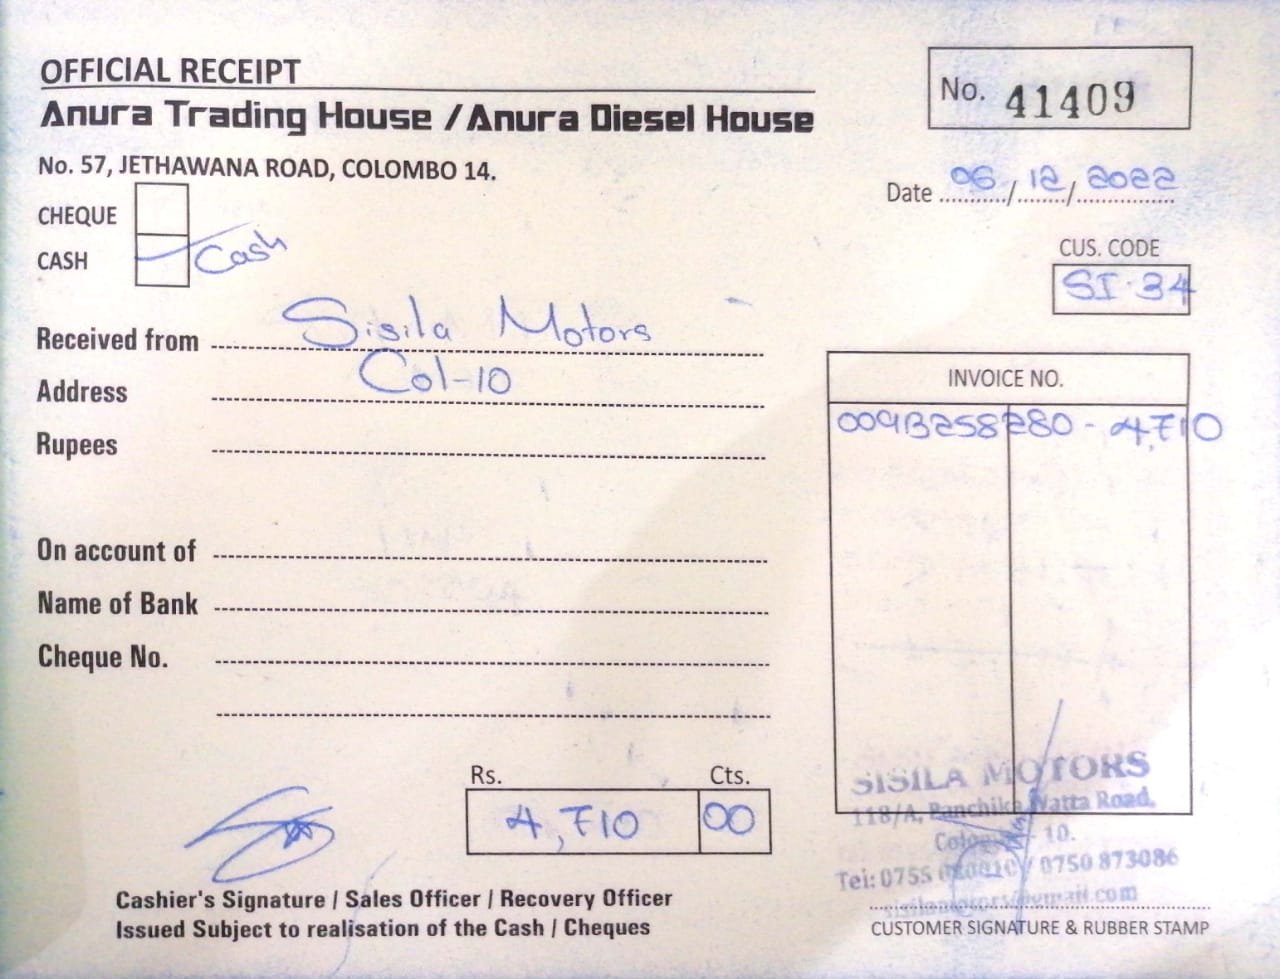 OFFICIAL RECEIPT
Anura Trading House / Anura Diesel House
No. 57, JETHAWANA ROAD, COLOMBO 14.
No. 41409
Date 06/12/2022
CHEQUE
CASH Cash
CUS. CODE
SI.34
Received from Sisila Motors
Address Col-10
Rupees
On account of
Name of Bank
Cheque No.
INVOICE NO.
009B258280 - 4,710
Rs. Cts.
4,710 00
Cashier's Signature / Sales Officer / Recovery Officer
Issued Subject to realisation of the Cash / Cheques
SISILA MOTORS
118/A, Panchika Watta Road,
Colombo - 10.
Tel: 0755 / 0750 873086
CUSTOMER SIGNATURE & RUBBER STAMP